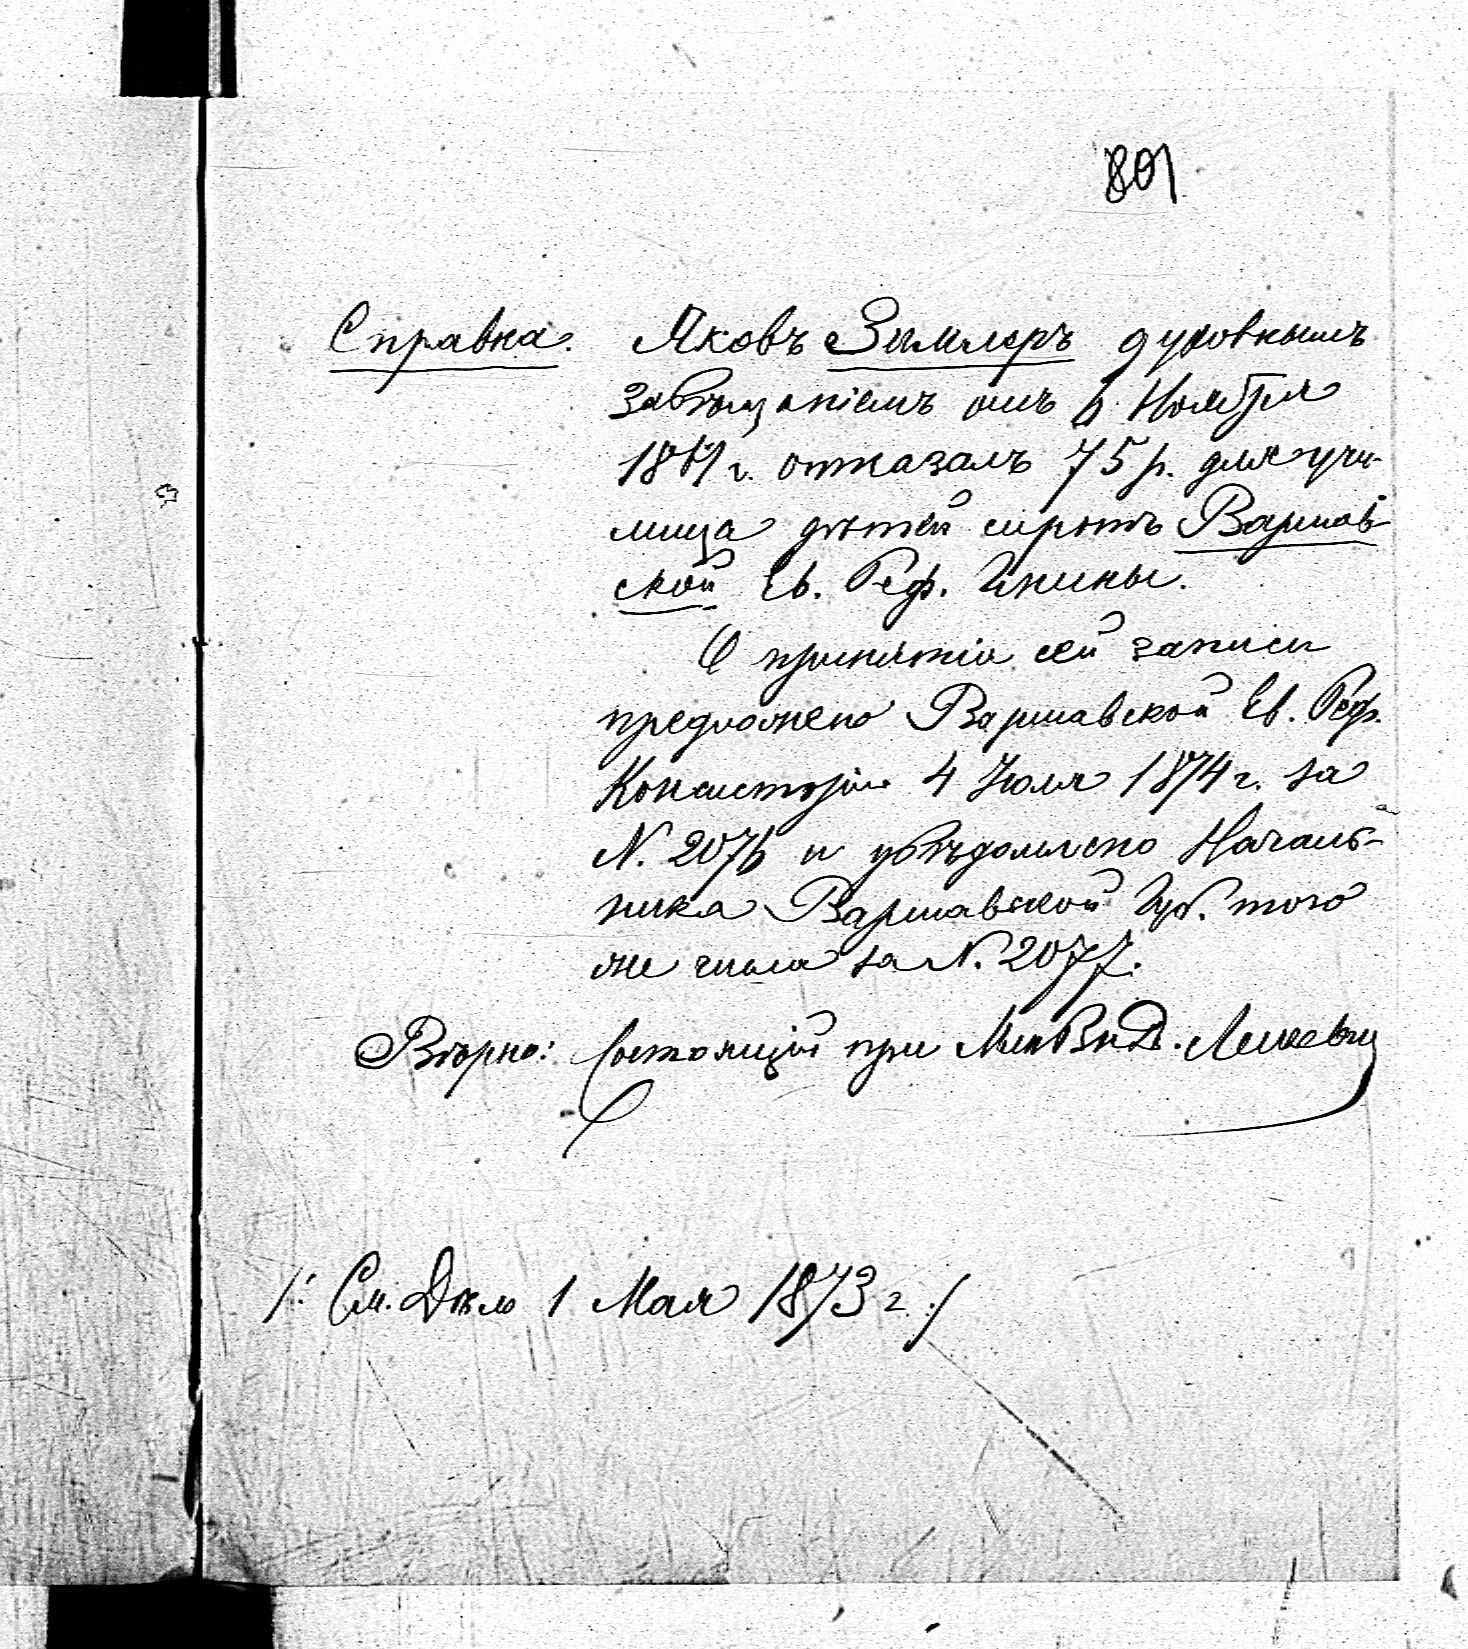 801
Справка. Яковъ Зимлеръ духовнымъ
завѣщаніемъ отъ 6 Ноября
18 г. отказалъ 75 р. для учи-
лища дѣтей сиротъ Варшав-
ской Ев. Реф. Гмины.
О принятіи сей записи
предложено Варшавской Ев. Реф.
Консисторіи 4 Іюля 1874 г. за
N. 2076 и увѣдомлено Началь-
ника Варшавской Губ. того
же числа за N. 2077.
Вѣрно: Состоящій при Мин Вн Д.
/: См. Дѣло 1 Мая 1873 г. :/